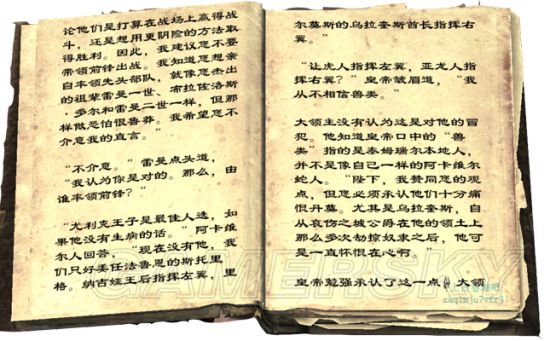 论他们是打算在战场上赢得战
斗，还是想用更阴险的方法取
得胜利。因此，我建议您不要
带领前锋出战。我知道您想亲
自率领先头部队，就像您杰出
的祖辈雷曼一世、布拉佐洛斯
·多尔和雷曼二世一样，但那
样做恐怕很鲁莽。我希望您不
介意我的直言。”
“不介意。”雷曼点头道，
“我认为你是对的。那么，由
谁率领前锋？”
“尤利克王子是最佳人选，如
果他没有生病的话。”阿卡维
尔人回答。“现在没有他，我
们只好委任法鲁恩的斯托里
格。纳吉娃王后指挥左翼，里
尔莫斯的乌拉奎斯酋长指挥右
翼。”
“让虎人指挥左翼，亚龙人指
挥右翼？”皇帝皱眉道，“我
从不相信兽类。”
大领主没有认为这是对他的冒
犯。他知道皇帝口中的“兽
类”指的是泰姆瑞尔本地人，
并不是像自己一样的阿卡维尔
蛇人。“陛下，我赞同您的观
点，但您必须承认他们十分痛
恨丹莫。尤其是乌拉奎斯，自
从哀伤之城公爵在他的领土上
那么多次劫掠奴隶之后，他可
是一直怀恨在心啊。”
皇帝勉强承认了这一点，大领
GAMERSKY
zsqimju7vfr4